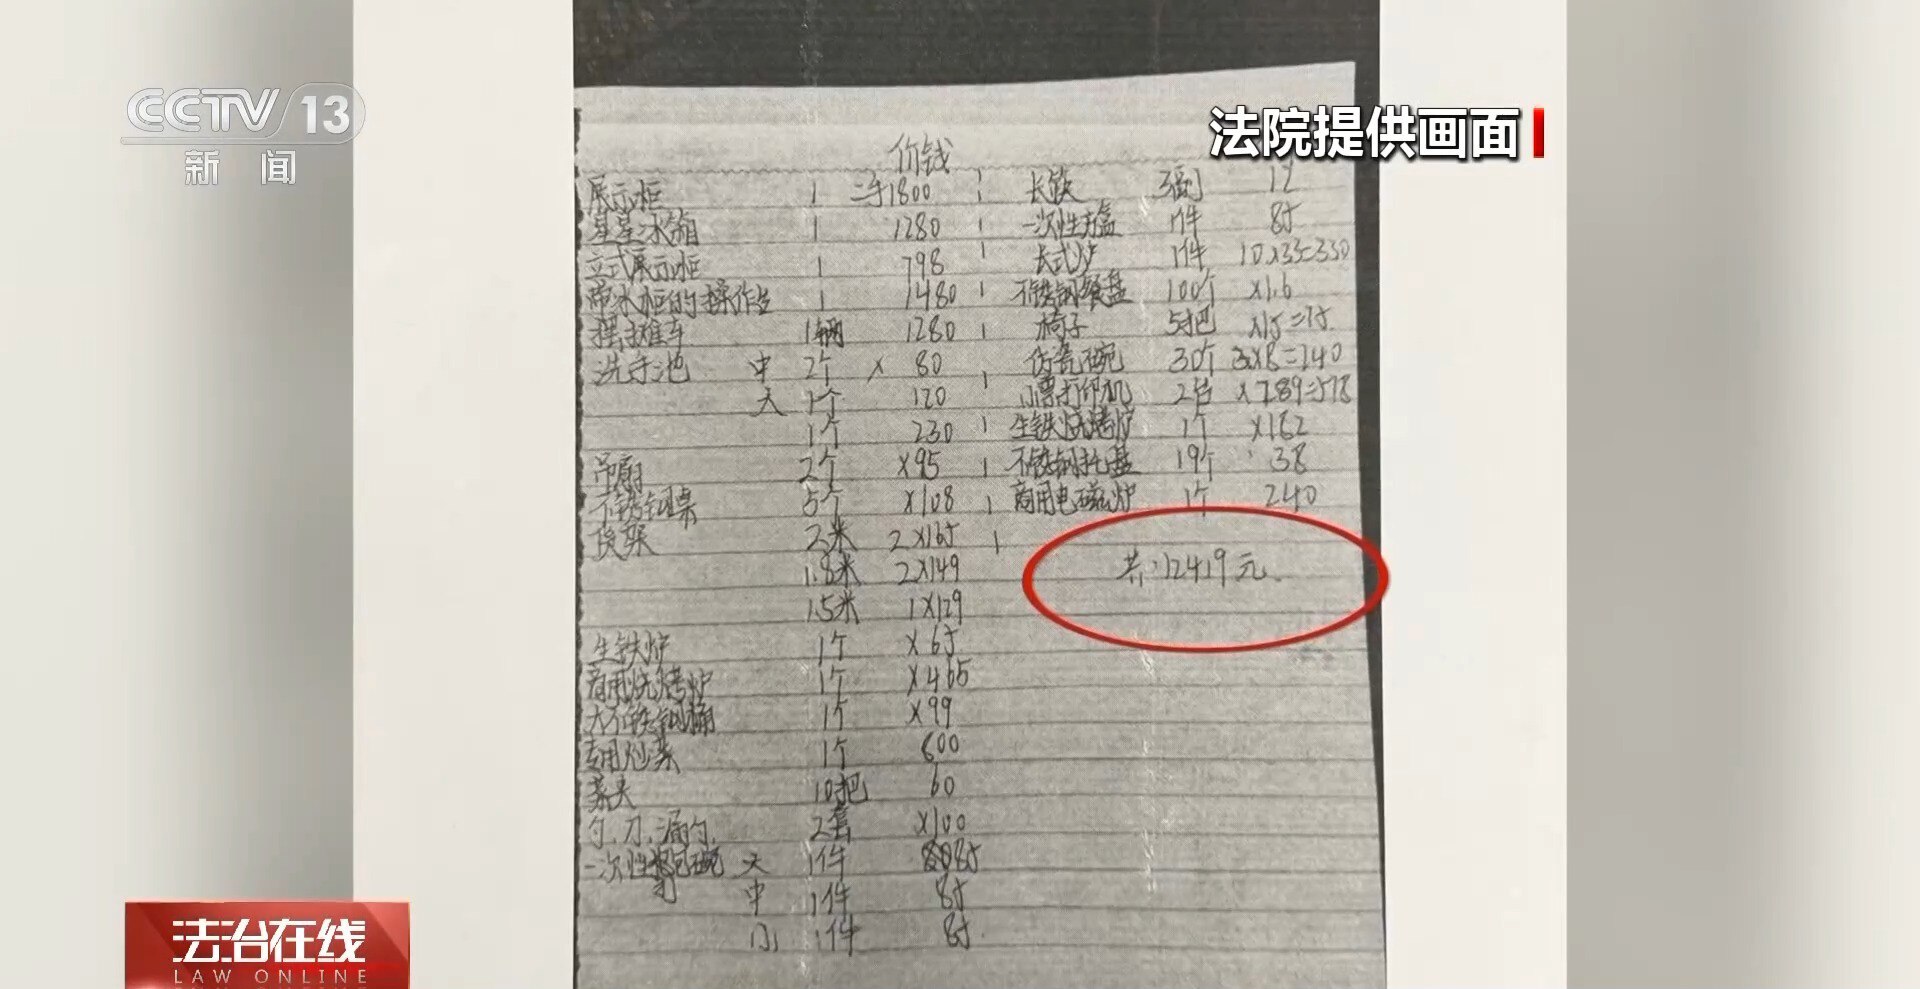 CCTV 13
新闻
法院提供画面
价钱
展示柜 1 二手1800
星星冰箱 1 1280
立式展示柜 1 798
带水柜的操作台 1 1480
摆摊车 1辆 1280
洗手池 中 2个 × 80
大 1个 120
1个 230
吊扇 2个 ×95
不锈钢桌 5个 ×108
货架 2米 2×165
1.8米 2×149
1.5米 1×129
生铁炉 1个 ×65
商用烧烤炉 1个 ×465
大不铁钢桶 1个 ×99
专用炒菜 1个 600
10把 60
勺.刀.漏勺. 2套 ×100
一次性打包碗 大 1件 85
中 1件 85
小 1件 85.
长筷 12
一次性方盒 1件 85
长式炉 1件 10×33=330
不铁钢餐盘 100个 ×1.6
椅子 5把 ×15=75
仿瓷碗 30个 3×8=240
小票打印机 2台 ×289=578
生铁烧烤炉 1个 ×162
不铁钢托盘 19个 38
商用电磁炉 1个 240
共:12419元.
法治在线
LAW ONLINE